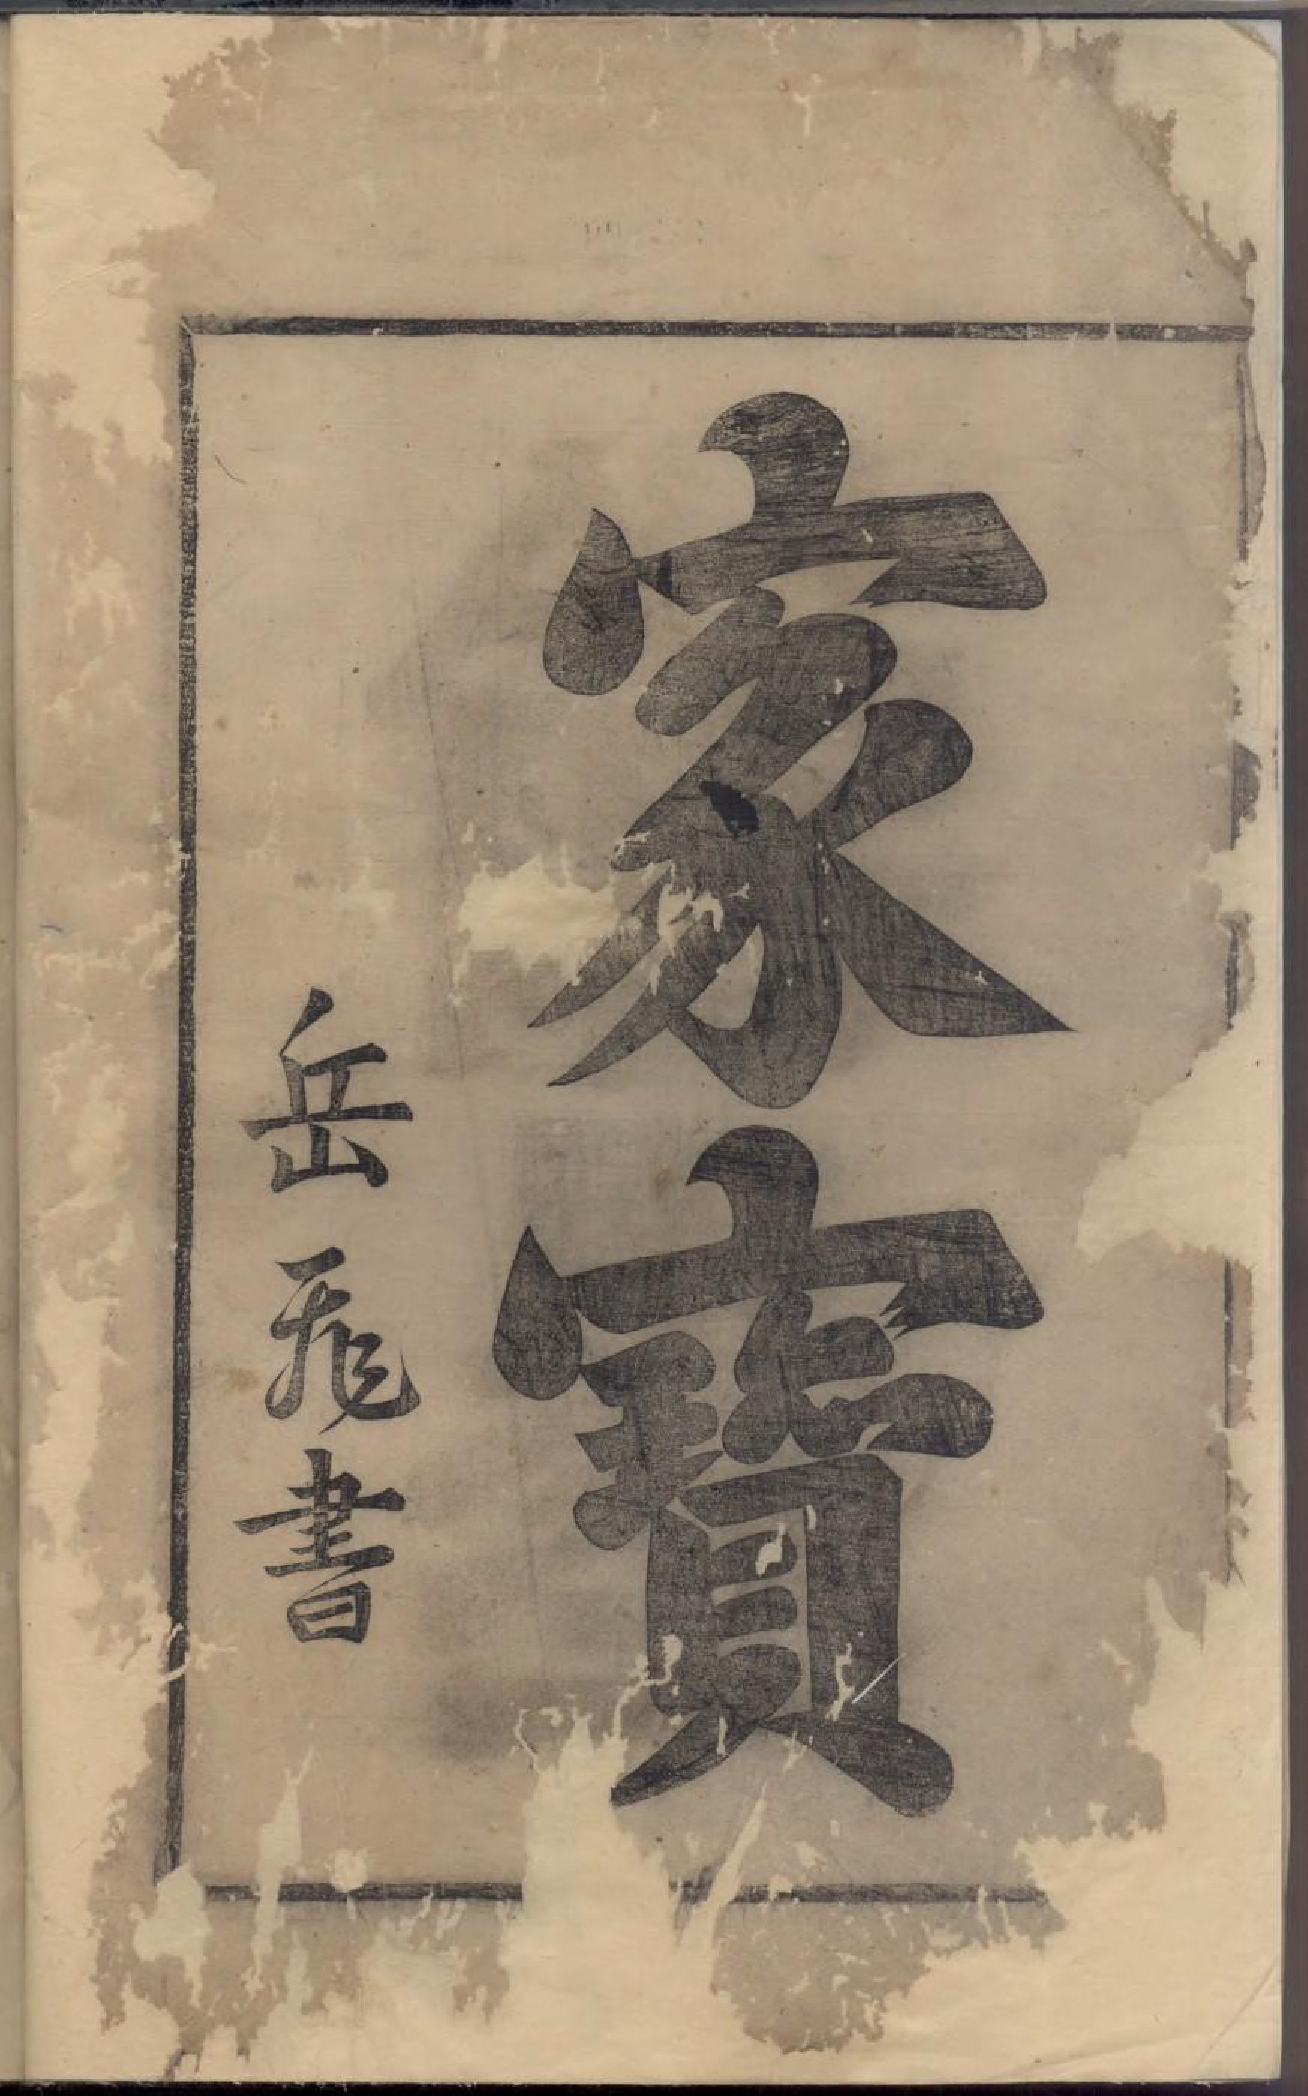 家寶
岳飛書